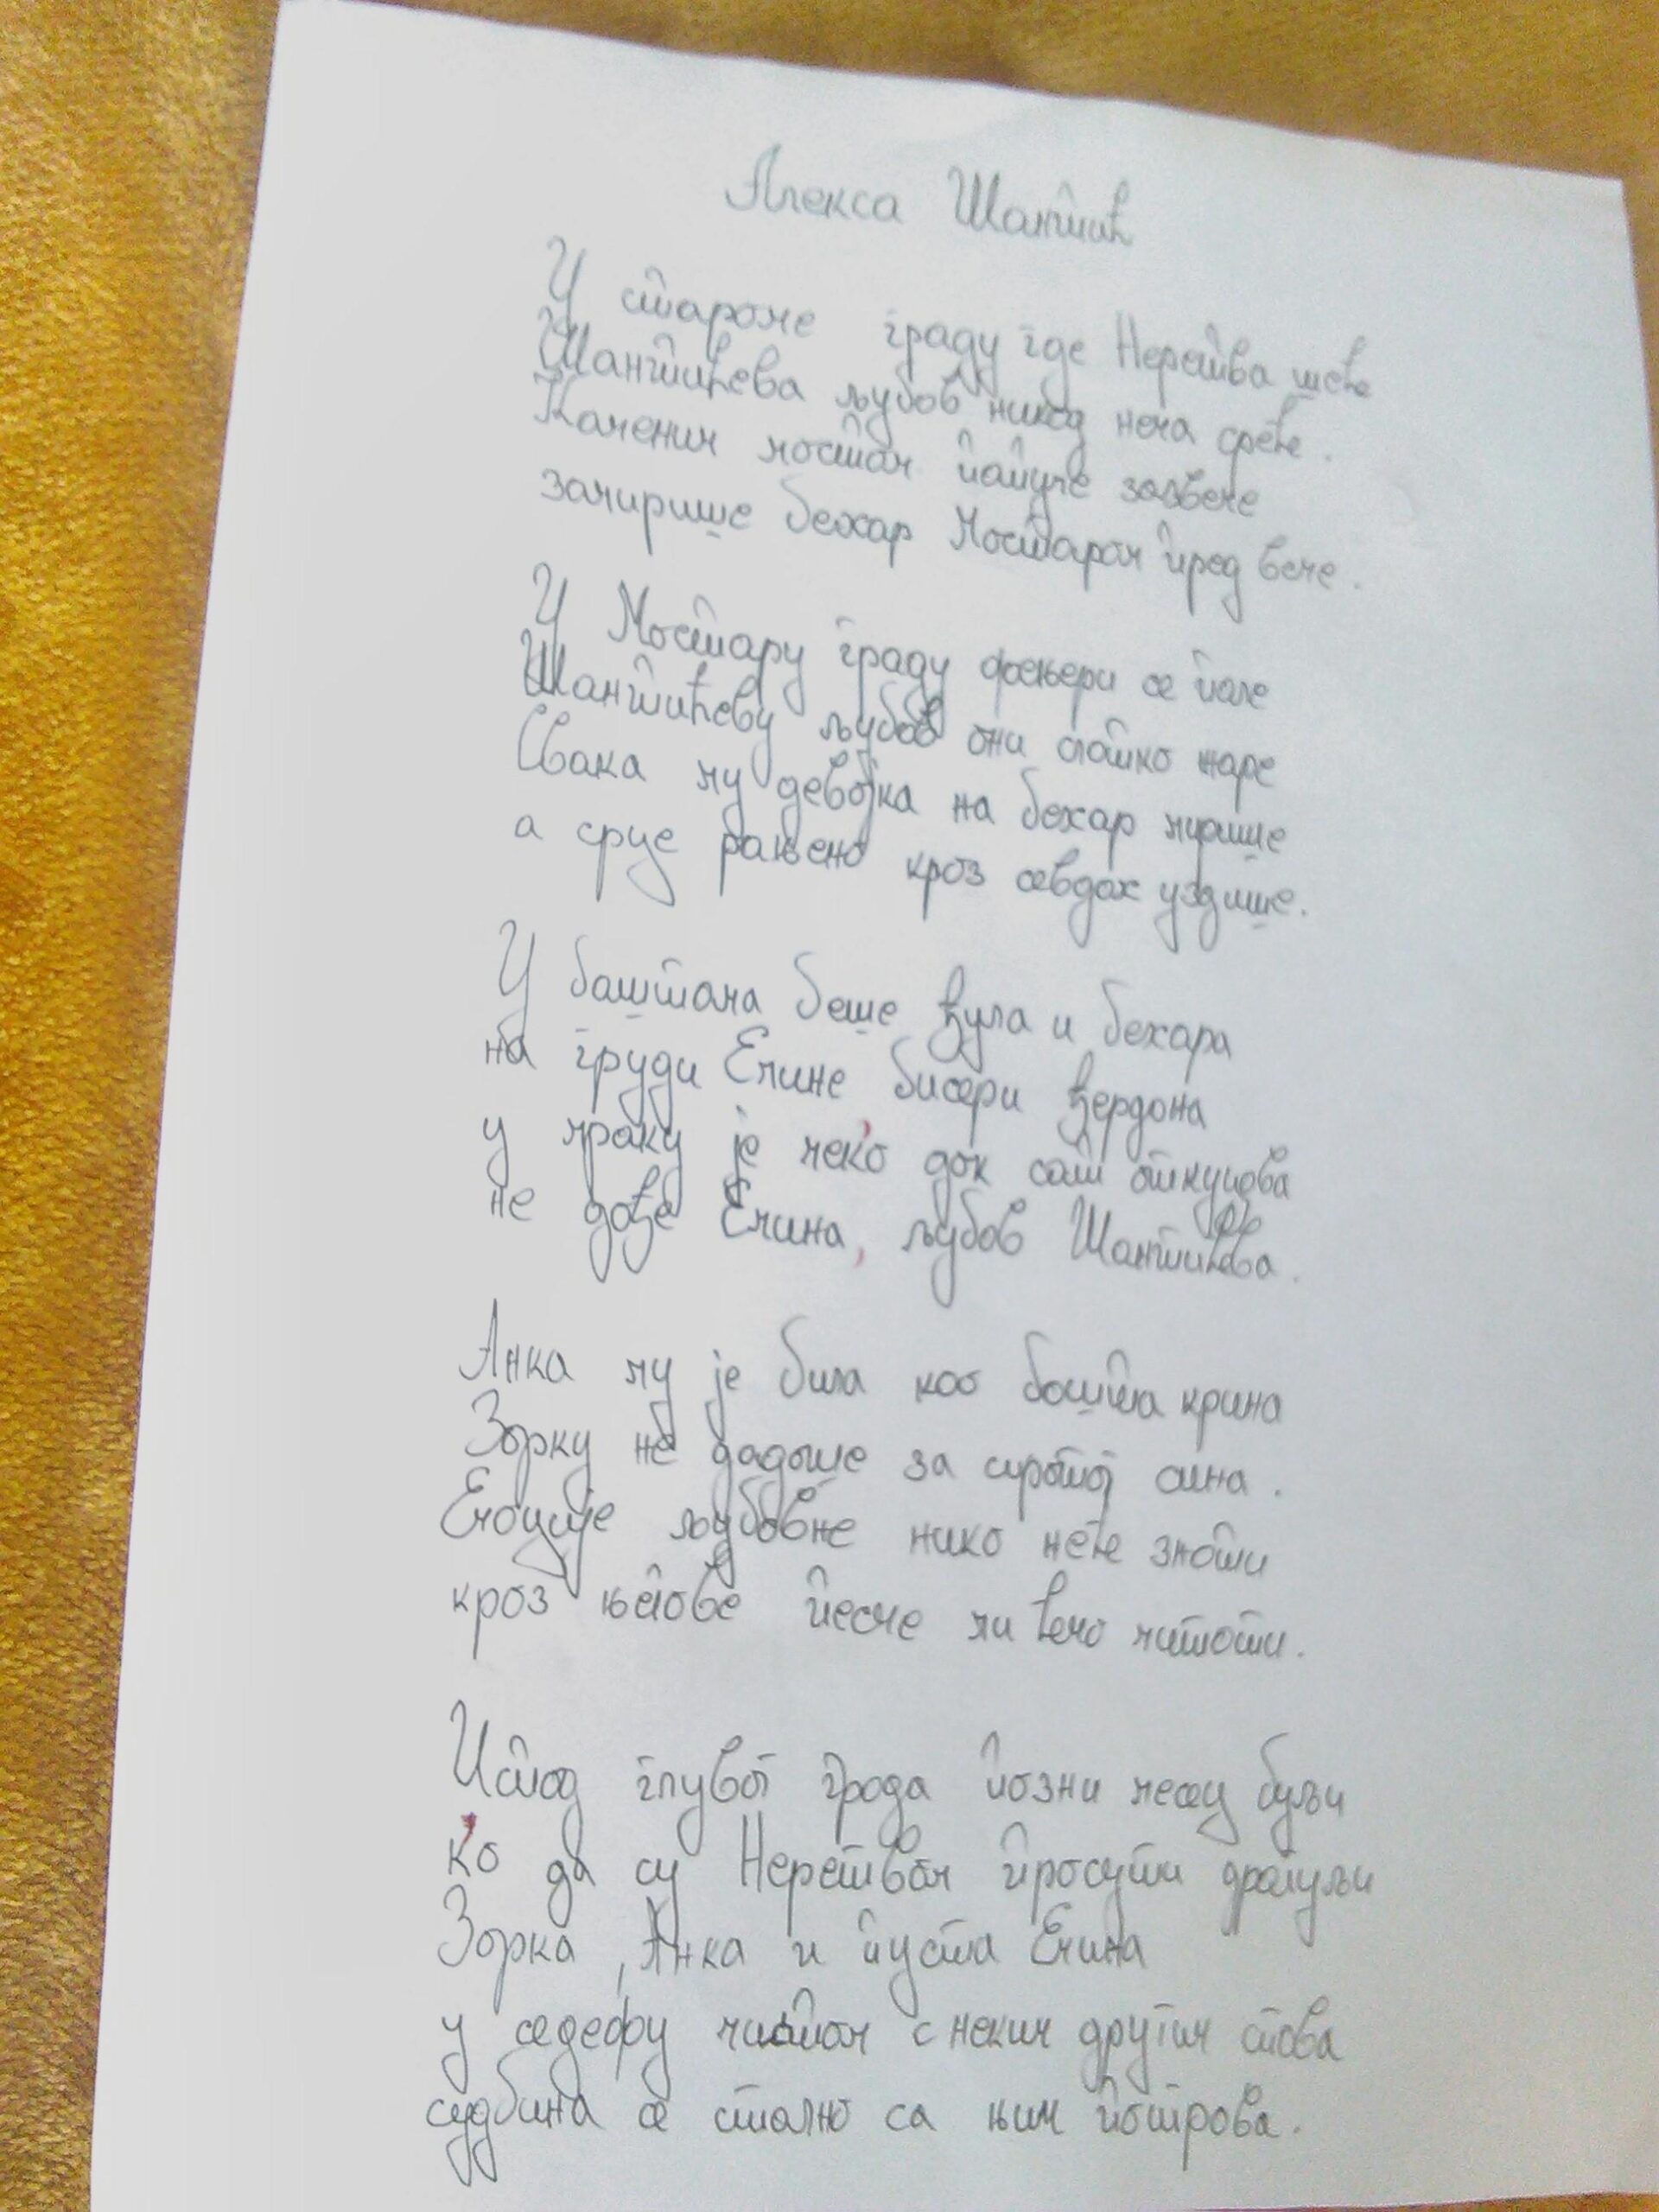 Алекса Шантић
У староме граду где Неретва шеће
Шантићева љубов никод нема среће.
Каменим мостом папуче зазвече
замирише бехар Мостаром пред вече.
У Мостару граду фењери се пале
Шантићеву љубов они слатко жаре
Свака му девојка на бехар мирише
а срце рањено кроз севдах уздише.
У баштама беше ђула и бехара
на груди Емине бисери ђердона
у мраку је чек'о док сат откуцова
не дође Емина, љубов Шантићева.
Анка му је била као башта крина
Зорку не дадоше за сиротог сина.
Емоције љубовне нико неће знати
кроз његове песме ми ћемо читоти.
Испод глувог града позни месец буљи
к'о да су Неретвом просути драгуљи
Зорка, Анка и пуста Емина
у седефу чистом с неким другим спова
судбина се стално са њим поигрова.